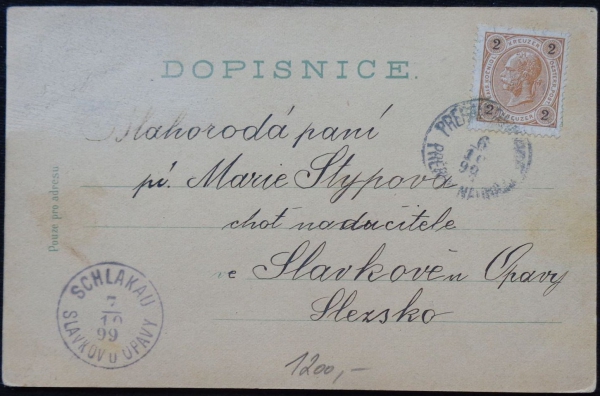 DOPISNICE.
Blahorodá paní
pí. Marie Stypová
choť nadučitele
ve Slavkově u Opavy
Slezsko
Pouze pro adresu
2 KREUZER 2
2 KREUZER 2
6
10
99
SCHLAKAU
7
10
99
SLAVKOV U OPAVY
1200,-